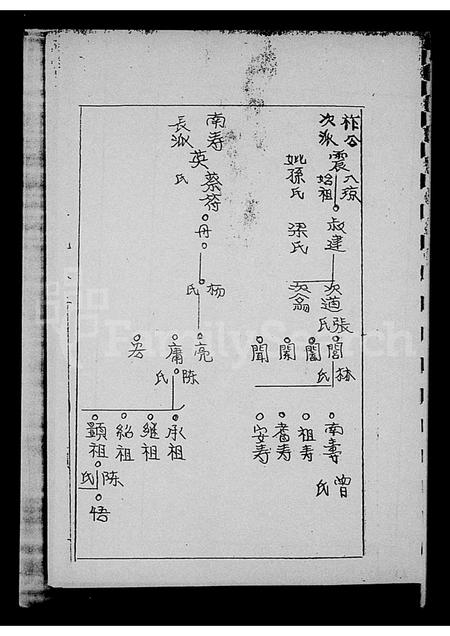 柞公
次派
震
入琼
始祖
妣孫氏
叔建
梁氏
次適
次翕
張氏
誾
閣
関
聞
林氏
南壽
祖寿
耆寿
安寿
曾氏
南寿
長派
英
蔡氏
符
丹
杨氏
亮
庸
宏
陈氏
承祖
继祖
紹祖
顕祖
陈氏
悟
FamilySearch